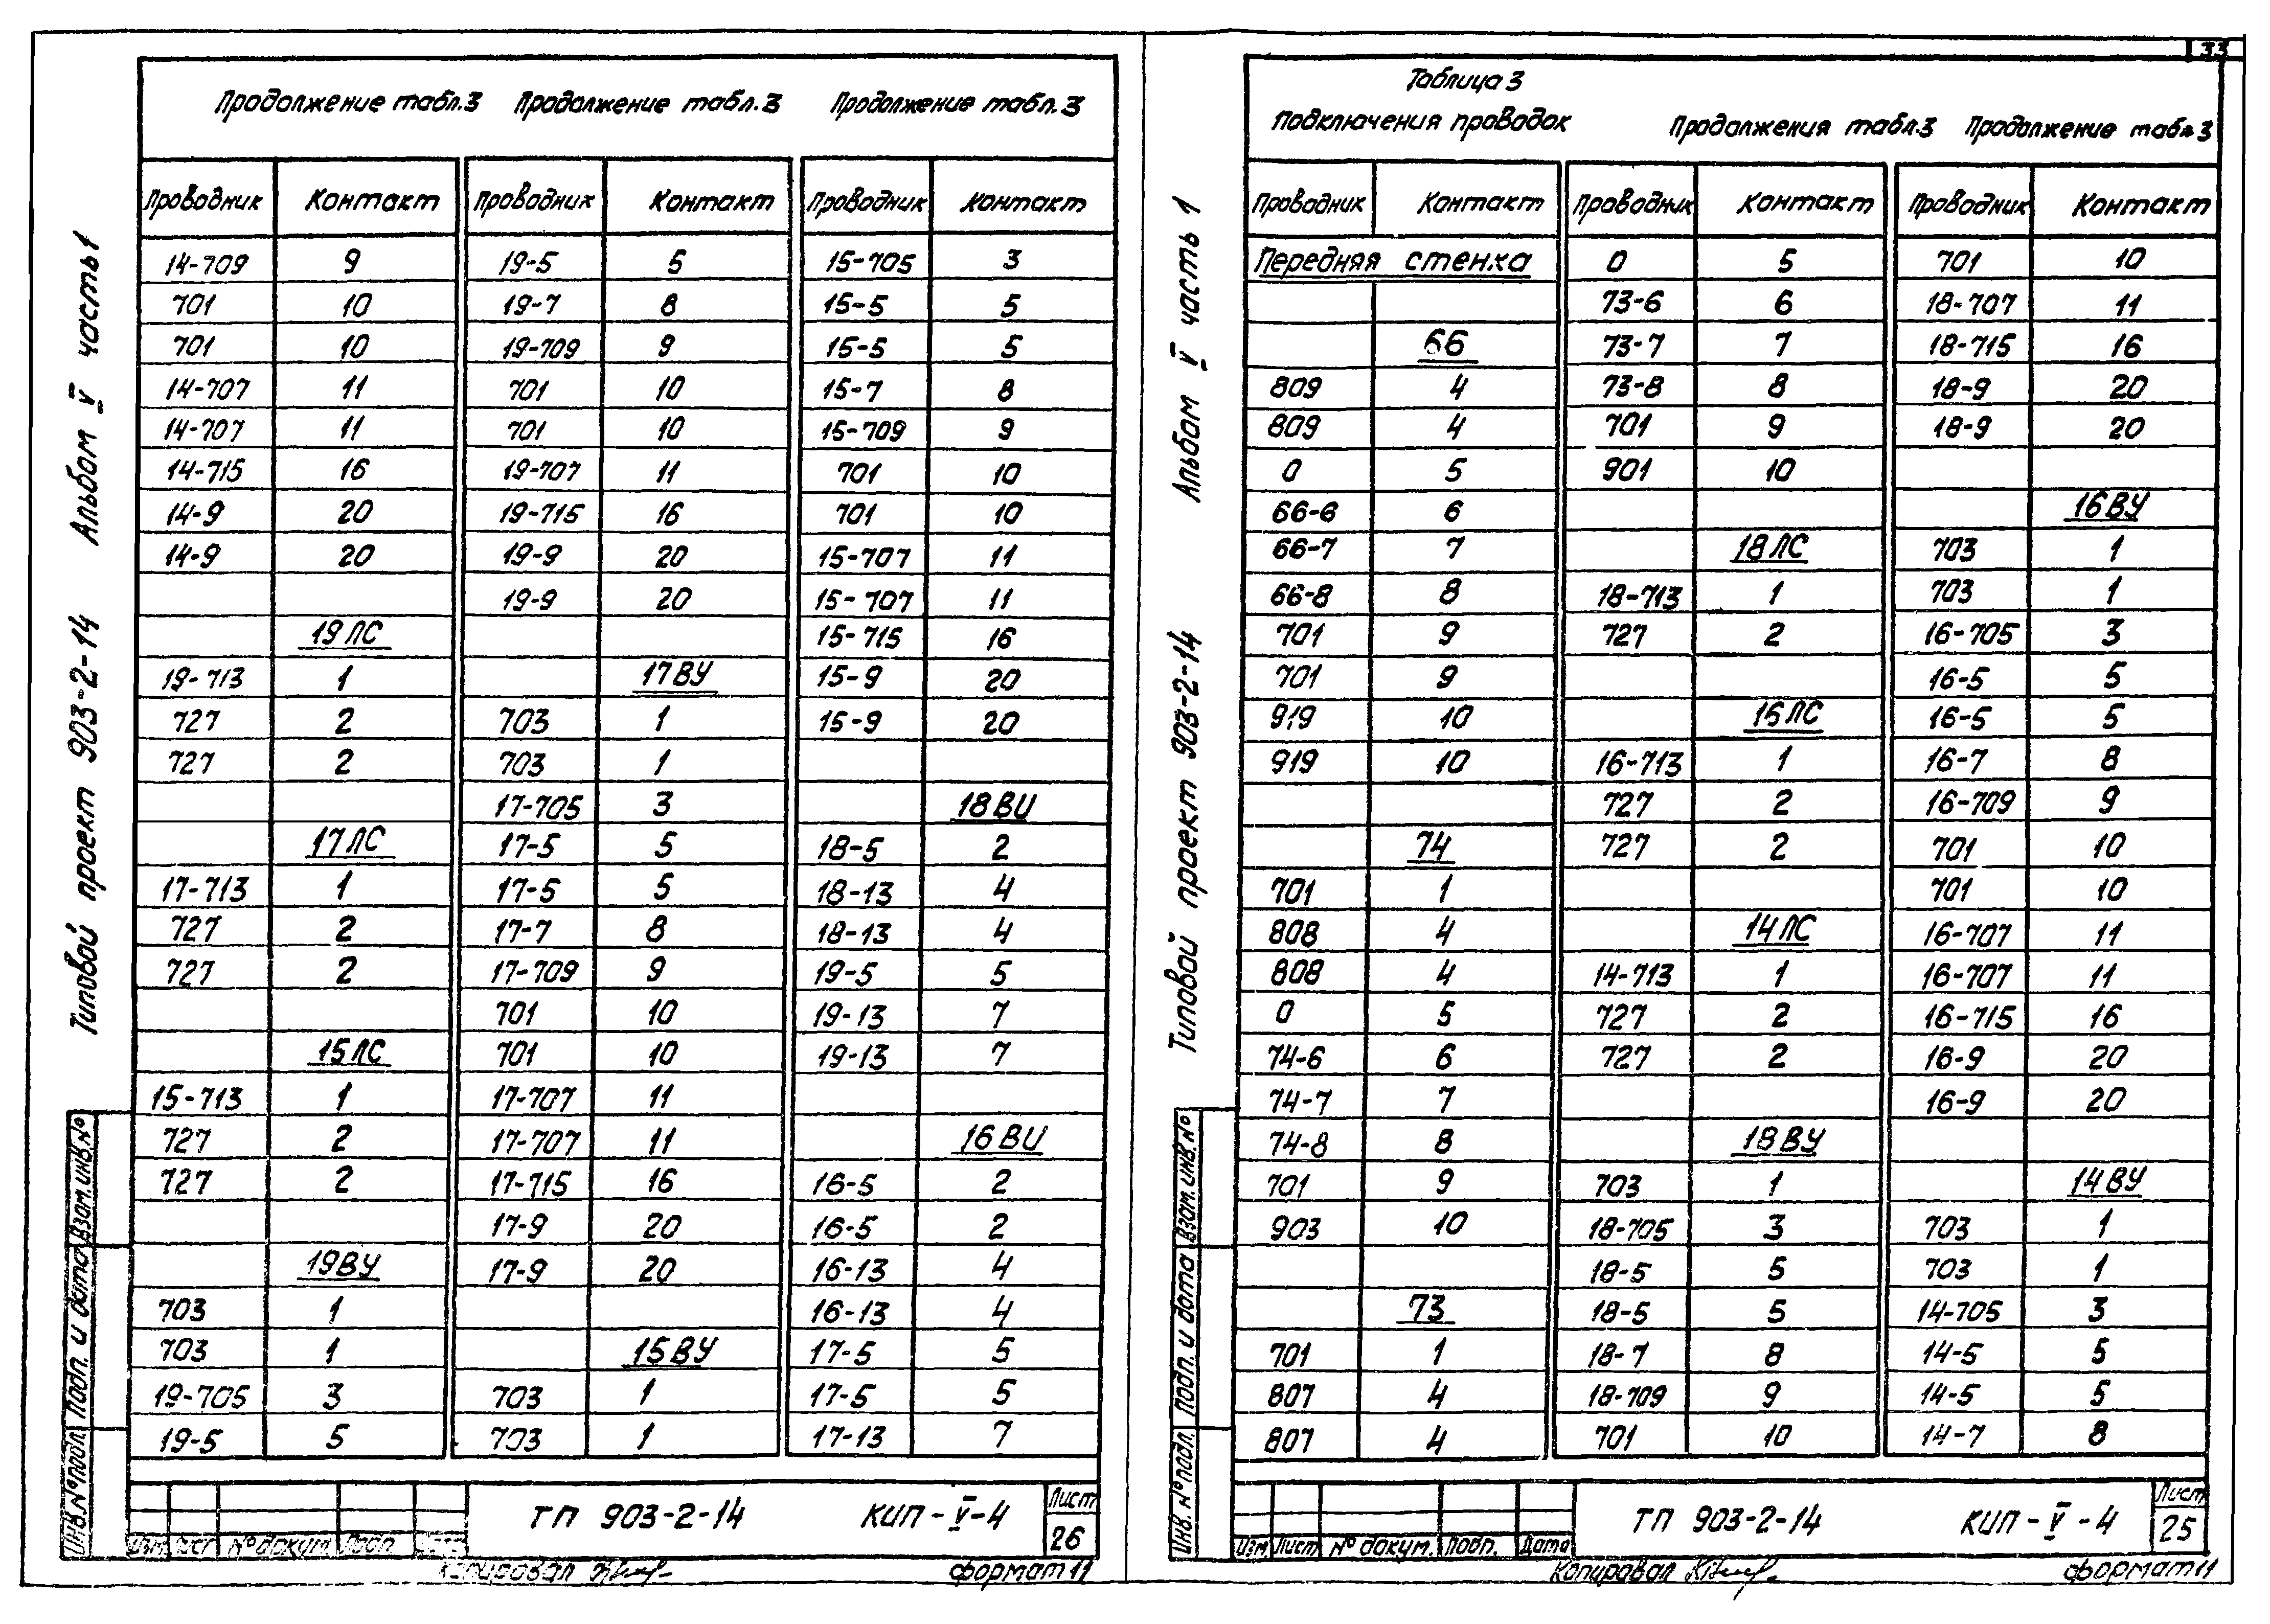 33
Продолжение табл.3 Продолжение табл.3 Продолжение табл.3
Проводник Контакт Проводник Контакт Проводник Контакт
14-709 9 19-5 5 15-705 3
701 10 19-7 8 15-5 5
701 10 19-709 9 15-5 5
14-707 11 701 10 15-7 8
14-707 11 701 10 15-709 9
14-715 16 19-707 11 701 10
14-9 20 19-715 16 701 10
14-9 20 19-9 20 15-707 11
19-9 20 15-707 11
19ЛС 15-715 16
19-713 1 17ВУ 15-9 20
727 2 703 1 15-9 20
727 2 703 1
17-705 3 18ВЦ
17ЛС 17-5 5 18-5 2
17-713 1 17-5 5 18-13 4
727 2 17-7 8 18-13 4
727 2 17-709 9 19-5 5
701 10 19-13 7
15ЛС 701 10 19-13 7
15-713 1 17-707 11
727 2 17-707 11 16ВЦ
727 2 17-715 16 16-5 2
17-9 20 16-5 2
19ВУ 17-9 20 16-13 4
703 1 16-13 4
703 1 15ВУ 17-5 5
19-705 3 703 1 17-5 5
19-5 5 703 1 17-13 7
ТП 903-2-14 КИП-V-4 Лист
26
Изм Лист № докум. Подп
Копировал формат 11
Типовой проект 903-2-14 Альбом V часть 1
Инв.№подл. Подп. и дата Взам.инв.№
Таблица 3
Подключения проводок Продолжения табл.3 Продолжение табл.3
Проводник Контакт Проводник Контакт Проводник Контакт
Передняя стенка 0 5 701 10
73-6 6 18-707 11
66 73-7 7 18-715 16
809 4 73-8 8 18-9 20
809 4 701 9 18-9 20
0 5 901 10
66-6 6 16ВУ
66-7 7 18ЛС 703 1
66-8 8 18-713 1 703 1
701 9 727 2 16-705 3
701 9 16-5 5
919 10 16ЛС 16-5 5
919 10 16-713 1 16-7 8
727 2 16-709 9
74 727 2 701 10
701 1 701 10
808 4 14ЛС 16-707 11
808 4 14-713 1 16-707 11
0 5 727 2 16-715 16
74-6 6 727 2 16-9 20
74-7 7 16-9 20
74-8 8 18ВУ
701 9 703 1 14ВУ
903 10 18-705 3 703 1
18-5 5 703 1
73 18-5 5 14-705 3
701 1 18-7 8 14-5 5
807 4 18-709 9 14-5 5
807 4 701 10 14-7 8
ТП 903-2-14 КИП-V-4 Лист
25
Изм Лист № докум. Подп. Дата
Копировал формат 11
Типовой проект 903-2-14 Альбом V часть 1
Инв.№подл. Подп. и дата Взам.инв.№